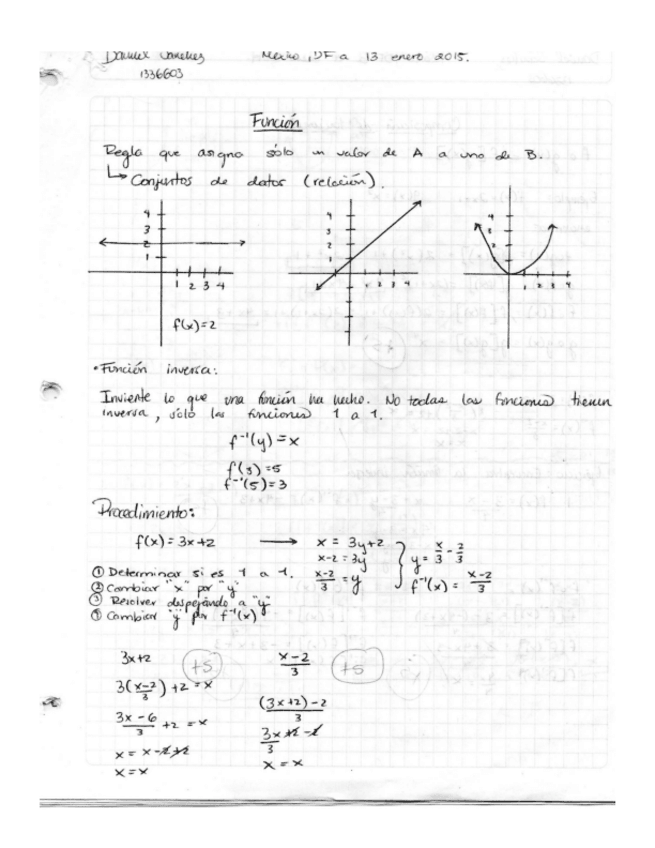 Daniel Sanchez México, DF a 13 enero 2015.
1336603
Función
Regla que asigna sólo un valor de A a uno de B.
↳ Conjuntos de datos (relación).
4
3
2
1
1 2 3 4
f(x)=2
4
3
2
1
1 2 3 4
4
1 2 3 4
• Función inversa:
Invierte lo que una función ha hecho. No todas las funciones tienen
inversa, sólo las funciones 1 a 1.
f⁻¹(y) = x
f(3) = 5
f⁻¹(5) = 3
Procedimiento:
f(x) = 3x+2 → x = 3y+2
x-2 = 3y
x-2/3 = y
y = x/3 - 2/3
f⁻¹(x) = x-2/3
① Determinar si es 1 a 1.
② Cambiar "x" por "y"
③ Resolver despejando a "y"
④ Cambiar "y" por f⁻¹(x)
3x+2 +5
3(x-2/3) +2 = x
3x-6/3 +2 = x
x = x-2+2
x = x
x-2/3 +5
(3x+2)-2/3
3x+2-2/3
x = x